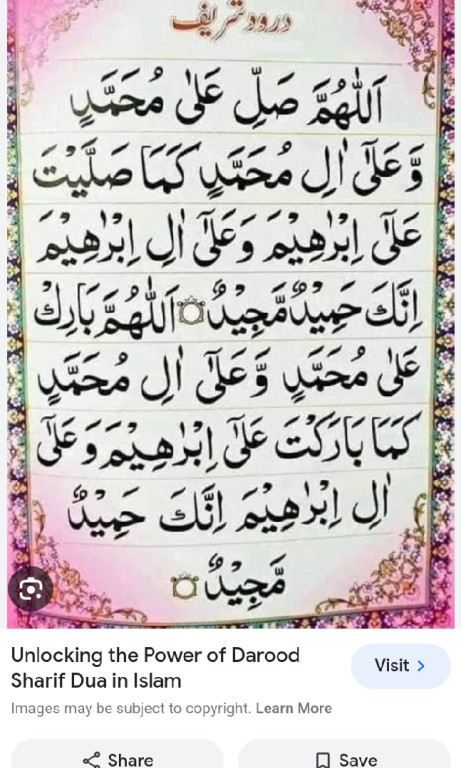 درود شریف
اَللّٰهُمَّ صَلِّ عَلٰی مُحَمَّدٍ
وَّعَلٰۤی اٰلِ مُحَمَّدٍ کَمَا صَلَّیْتَ
عَلٰۤی اِبْرٰهِیْمَ وَعَلٰۤی اٰلِ اِبْرٰهِیْمَ
اِنَّكَ حَمِیْدٌ مَّجِیْدٌ ۝ اَللّٰهُمَّ بَارِكْ
عَلٰی مُحَمَّدٍ وَّعَلٰۤی اٰلِ مُحَمَّدٍ
کَمَا بَارَکْتَ عَلٰۤی اِبْرٰهِیْمَ وَعَلٰۤی
اٰلِ اِبْرٰهِیْمَ اِنَّكَ حَمِیْدٌ
مَّجِیْدٌ ۝
Unlocking the Power of Darood
Sharif Dua in Islam
Visit
Images may be subject to copyright. Learn More
Share
Save